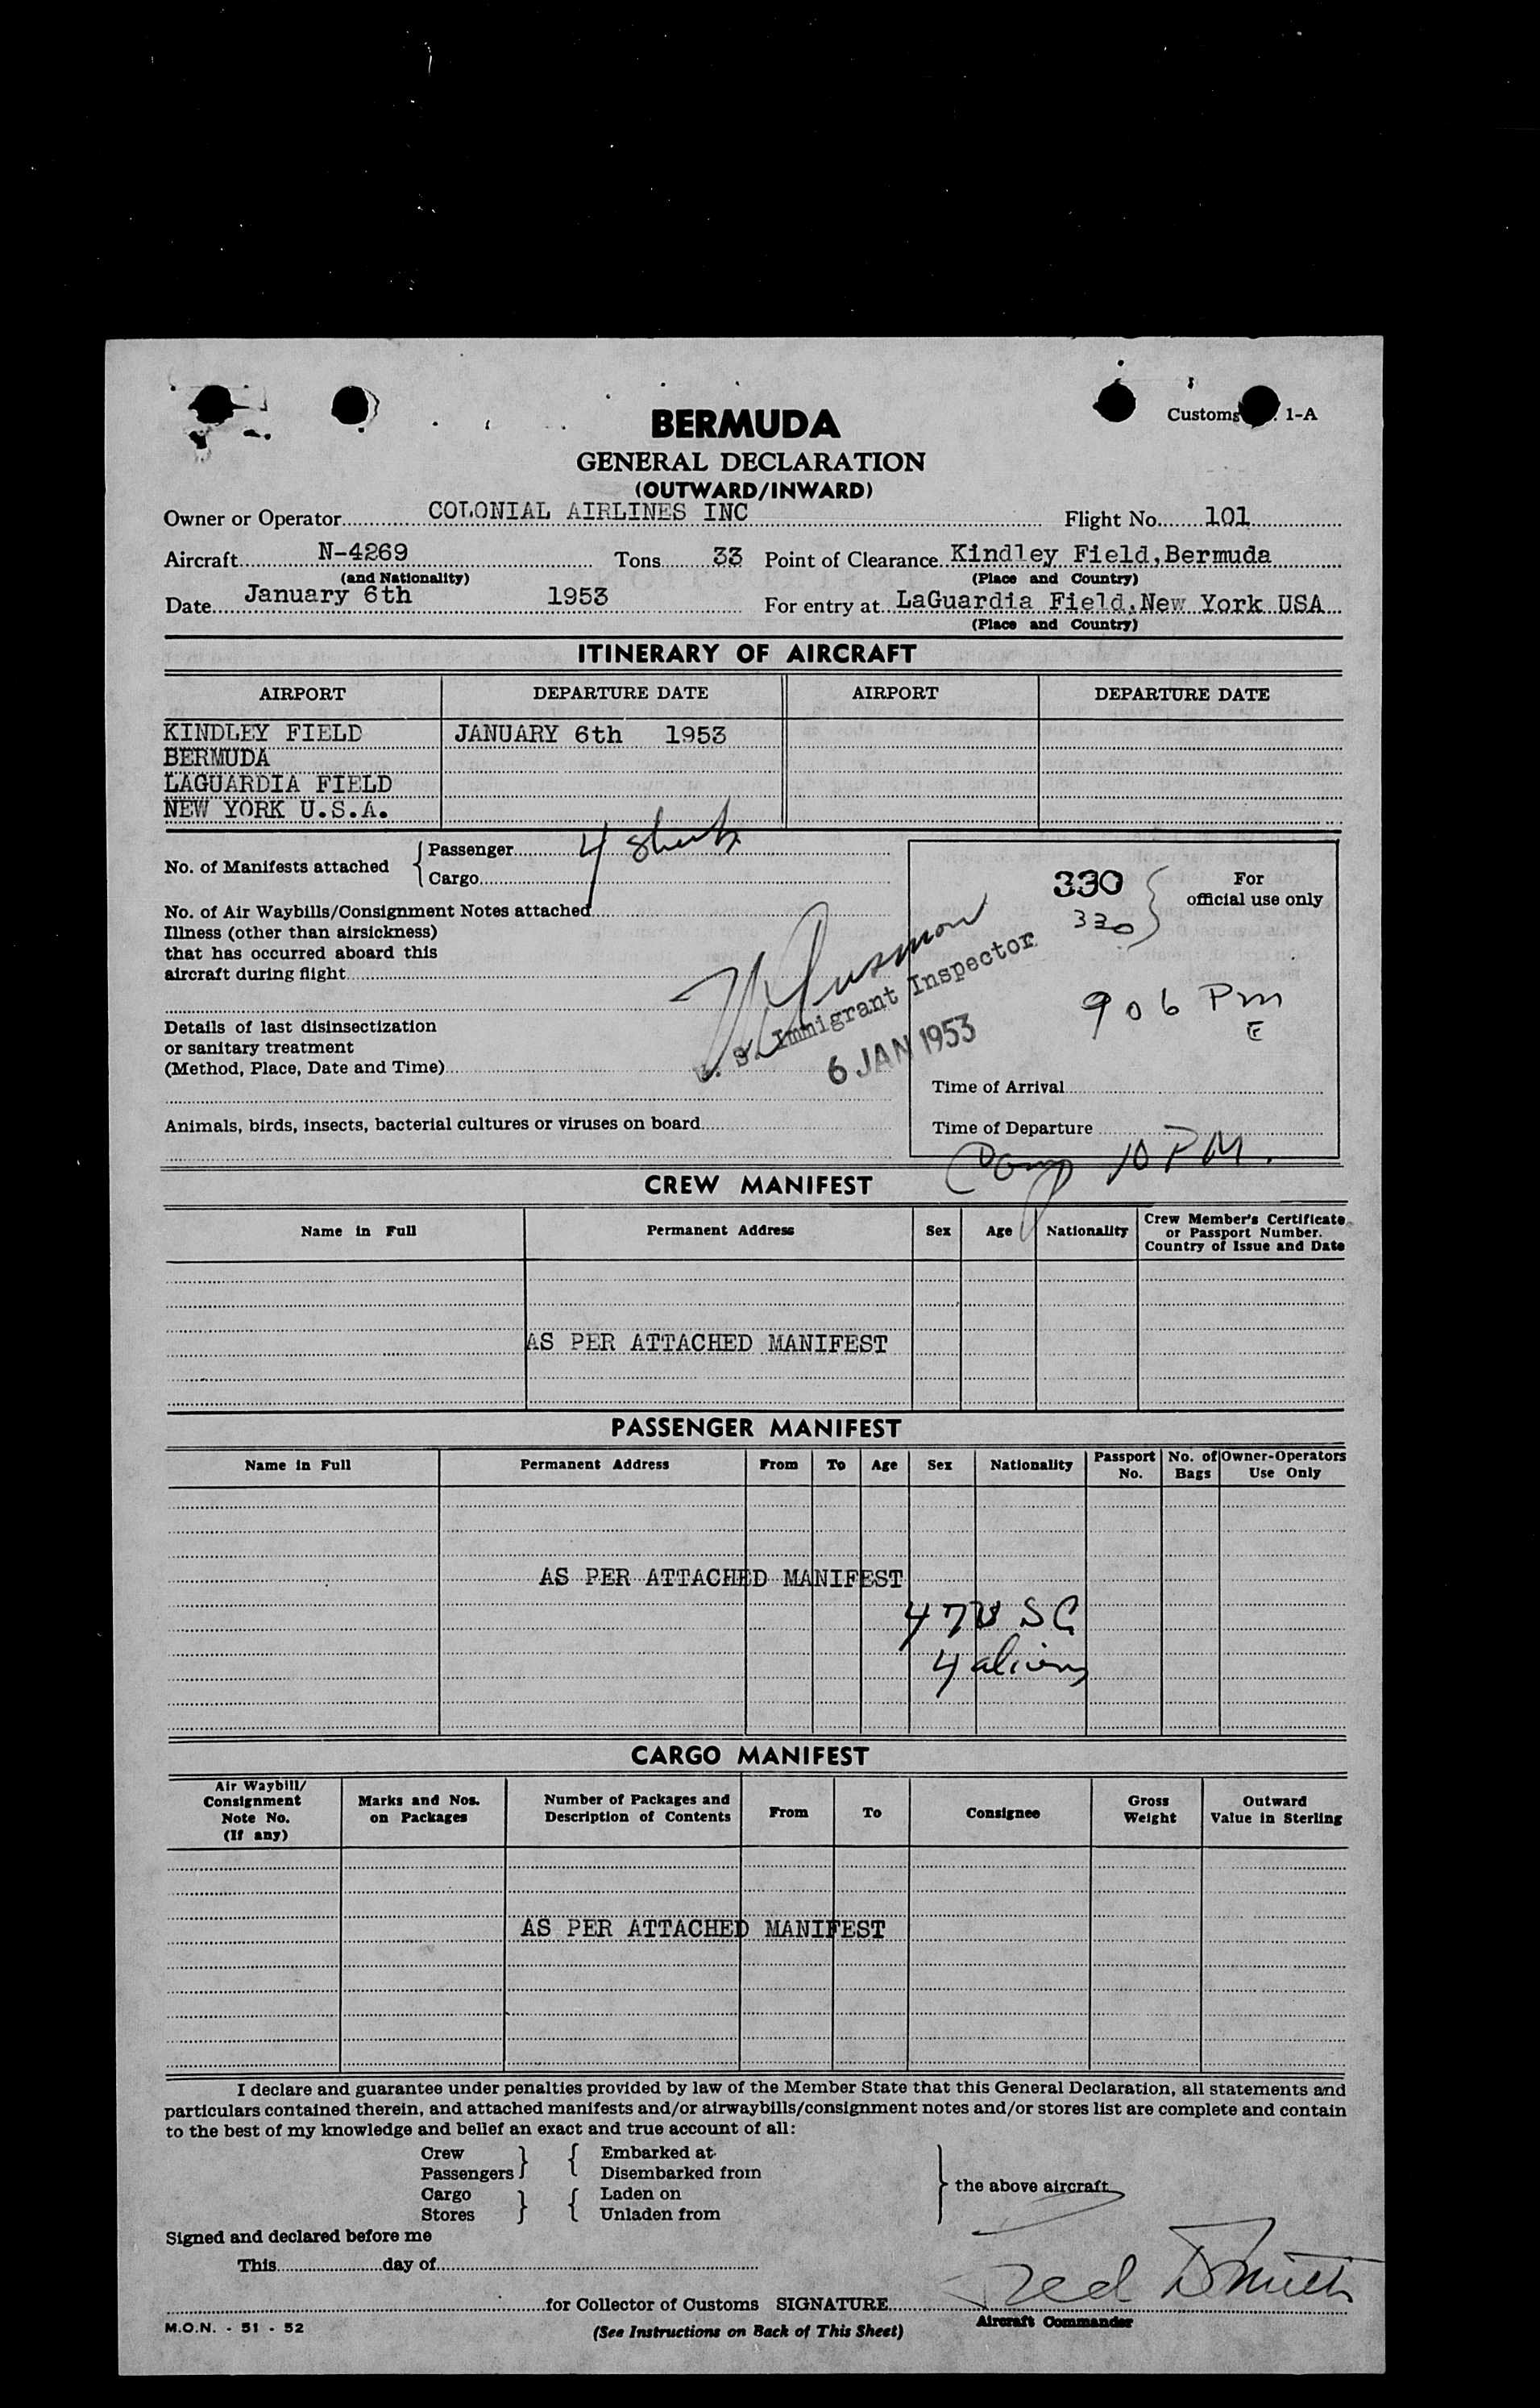 Customs . 1-A
BERMUDA
GENERAL DECLARATION
(OUTWARD/INWARD)
Owner or Operator COLONIAL AIRLINES INC Flight No. 101
Aircraft N-4269 Tons 33 Point of Clearance Kindley Field, Bermuda
(and Nationality) (Place and Country)
Date January 6th 1953 For entry at LaGuardia Field, New York USA
(Place and Country)
ITINERARY OF AIRCRAFT
AIRPORT DEPARTURE DATE AIRPORT DEPARTURE DATE
KINDLEY FIELD JANUARY 6th 1953
BERMUDA
LAGUARDIA FIELD
NEW YORK U.S.A.
No. of Manifests attached
Passenger 4 sheets
Cargo
No. of Air Waybills/Consignment Notes attached
Illness (other than airsickness)
that has occurred aboard this
aircraft during flight
Details of last disinsectization
or sanitary treatment
(Method, Place, Date and Time)
Animals, birds, insects, bacterial cultures or viruses on board
U. S. Immigrant Inspector
6 JAN 1953
330 For
official use only
330
906 Pm
E
Time of Arrival
Time of Departure
Comp 10 PM.
CREW MANIFEST
Name in Full Permanent Address Sex Age Nationality Crew Member's Certificate
or Passport Number.
Country of Issue and Date
AS PER ATTACHED MANIFEST
PASSENGER MANIFEST
Name in Full Permanent Address From To Age Sex Nationality Passport No. No. of Bags Owner-Operators Use Only
AS PER ATTACHED MANIFEST
47 U S C
4 aliens
CARGO MANIFEST
Air Waybill/
Consignment
Note No.
(If any)
Marks and Nos.
on Packages
Number of Packages and
Description of Contents
From To Consignee
Gross
Weight
Outward
Value in Sterling
AS PER ATTACHED MANIFEST
I declare and guarantee under penalties provided by law of the Member State that this General Declaration, all statements and
particulars contained therein, and attached manifests and/or airwaybills/consignment notes and/or stores list are complete and contain
to the best of my knowledge and belief an exact and true account of all:
Crew Embarked at
Passengers Disembarked from
Cargo Laden on
Stores Unladen from
the above aircraft
Signed and declared before me
This day of
for Collector of Customs SIGNATURE Ted Smith
Aircraft Commander
M.O.N. - 51 - 52
(See Instructions on Back of This Sheet)